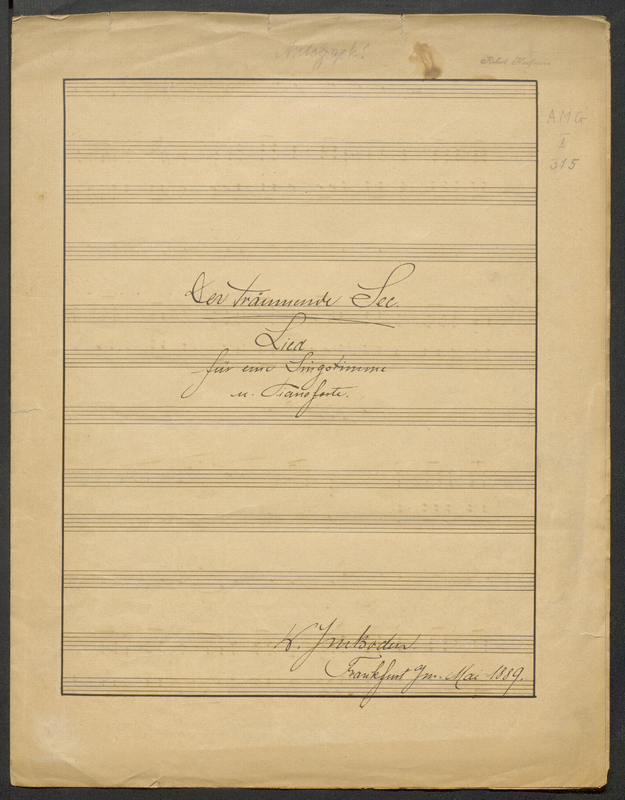 Autograph!
AMG
I
315
Der träumende See.
Lied
für eine Singstimme
u. Pianoforte.
Frankfurt Mai 1889.